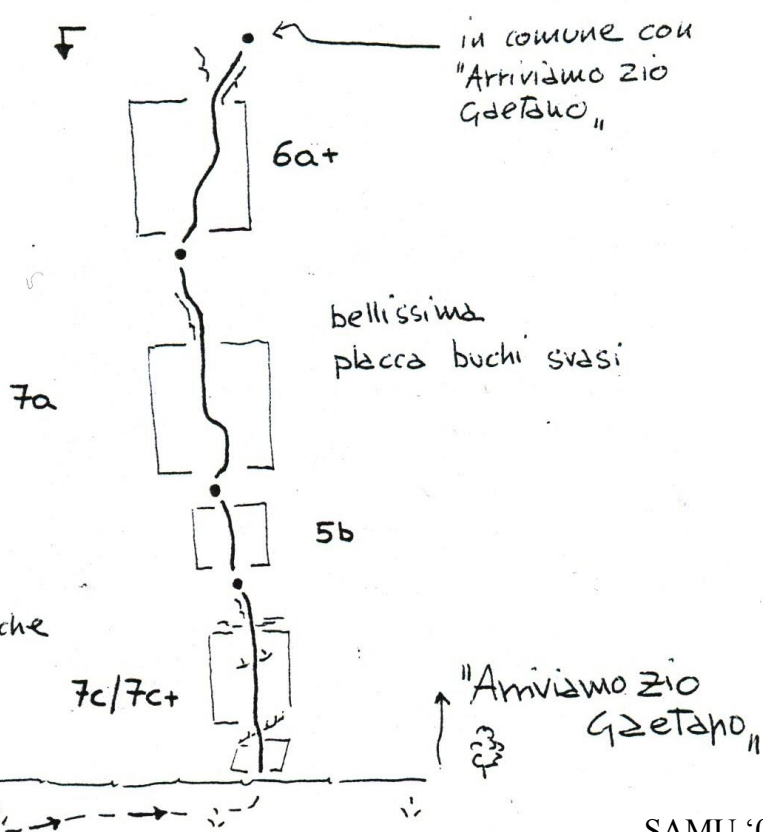 in comune con
"Arriviamo zio
Gaetano"
6a+
bellissima
placca buchi svasi
7a
5b
che
7c/7c+
"Arriviamo zio
Gaetano"
SAMU ‘0